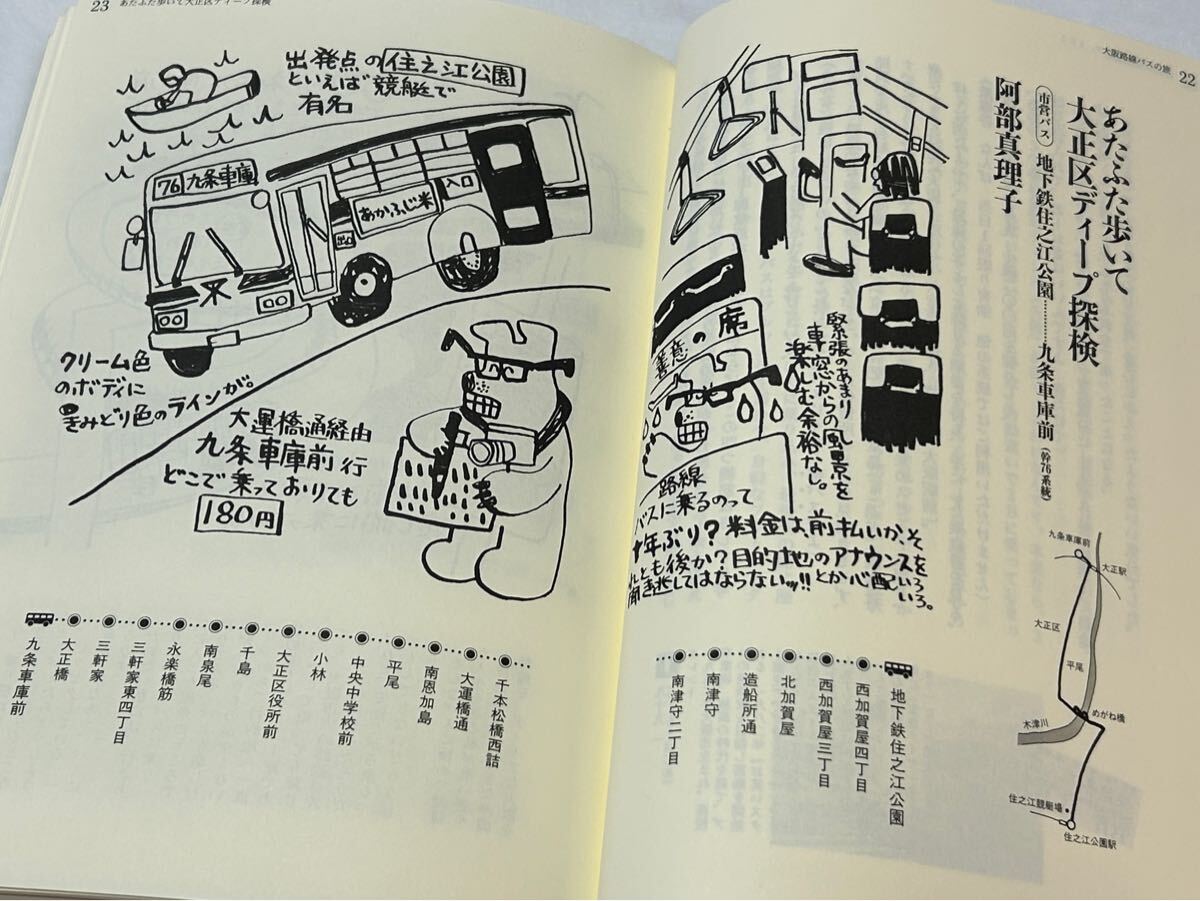 大阪路線バスの旅 22
あたふた歩いて
大正区ディープ探検
市営バス 地下鉄住之江公園………九条車庫前(幹76系統)
阿部真理子
善意の席
緊張のあまり
車窓からの風景を
楽しむ余裕なし。
路線
バスに乗るのって
十年ぶり?料金は、前払いか、そ
れとも後か?目的地のアナウンスを
聞き逃してはならないッ!!とか心配いろいろ。
九条車庫前
大正駅
大正区
平尾
めがね橋
木津川
住之江競艇場
住之江公園駅
地下鉄住之江公園
西加賀屋四丁目
西加賀屋三丁目
北加賀屋
造船所通
南津守
南津守二丁目
23 あたふた歩いて大正区ディープ探検
出発点の住之江公園
といえば競艇で
有名
76 九条車庫
あかふじ米
入口
出口
クリーム色
のボディに
きみどり色のラインが。
大運橋通経由
九条車庫前行
どこで乗っておりても
180円
千本松橋西詰
大運橋通
南恩加島
平尾
中央中学校前
小林
大正区役所前
千島
南泉尾
永楽橋筋
三軒家東四丁目
三軒家
大正橋
九条車庫前